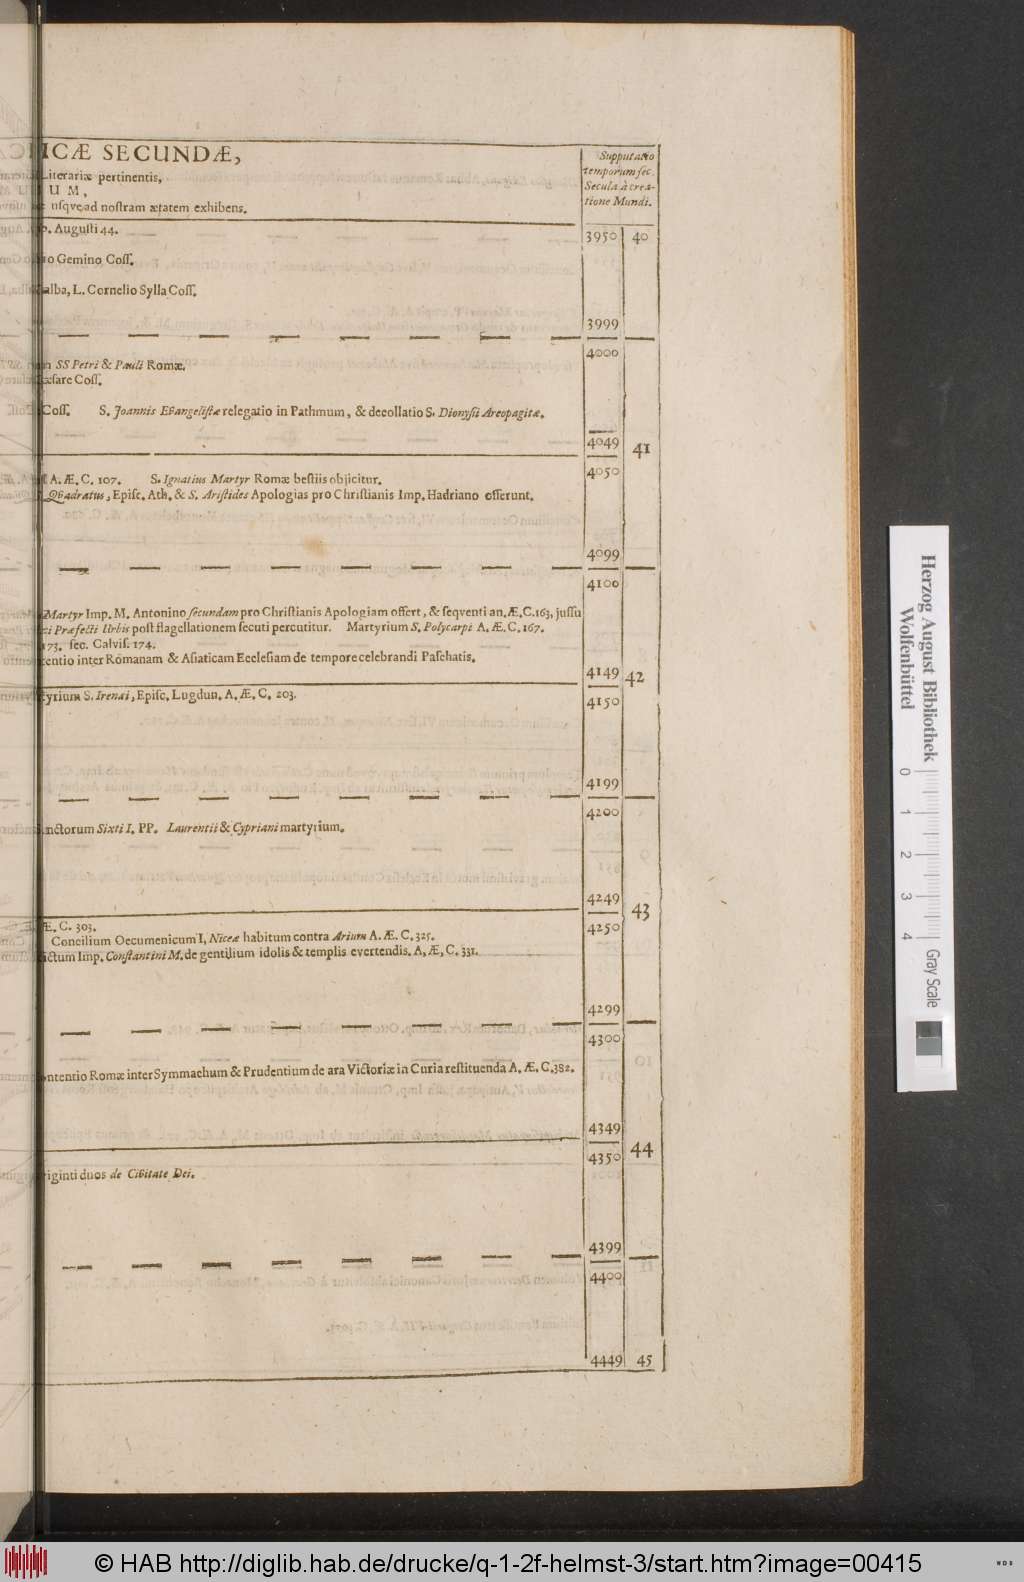 ICÆ SECUNDÆ,
Literariæ pertinentis,
U M,
usqve ad nostram ætatem exhibens.
Supputatio
temporum sec.
Secula à crea-
tione Mundi.
Augusti 44.
3950 40
io Gemino Coss.
alba, L. Cornelio Sylla Coss.
3999
4000
SS Petri & Pauli Romæ.
æsare Coss.
Coss. S. Joannis Evangelistæ relegatio in Pathmum, & decollatio S. Dionysii Areopagitæ.
4049 41
4050
A. Æ. C. 107. S. Ignatius Martyr Romæ bestiis objicitur.
Qvadratus, Episc. Ath. & S. Aristides Apologias pro Christianis Imp. Hadriano offerunt.
4099
4100
Martyr Imp. M. Antonino secundam pro Christianis Apologiam offert, & seqventi an. Æ. C. 163. jussu
ci Præfecti Urbis post flagellationem securi percutitur. Martyrium S. Polycarpi A. Æ. C. 167.
173. sec. Calvis. 174.
tentio inter Romanam & Asiaticam Ecclesiam de tempore celebrandi Paschatis.
4149 42
tyrium S. Irenæi, Episc. Lugdun. A. Æ. C. 203.
4150
4199
4200
nctorum Sixti I. PP. Laurentii & Cypriani martyrium.
4249 43
Æ. C. 303.
4250
Concilium Oecumenicum I, Niceæ habitum contra Arium A. Æ. C. 325.
ictum Imp. Constantini M. de gentilium idolis & templis evertendis. A. Æ. C. 331.
4299
4300
ntentio Romæ inter Symmachum & Prudentium de ara Victoriæ in Curia restituenda A. Æ. C. 382.
4349 44
4350
iginti duos de Civitate Dei.
4399
4400
4449 45
Herzog August Bibliothek
Wolfenbüttel
0 1 2 3 4
Gray Scale
© HAB http://diglib.hab.de/drucke/q-1-2f-helmst-3/start.htm?image=00415